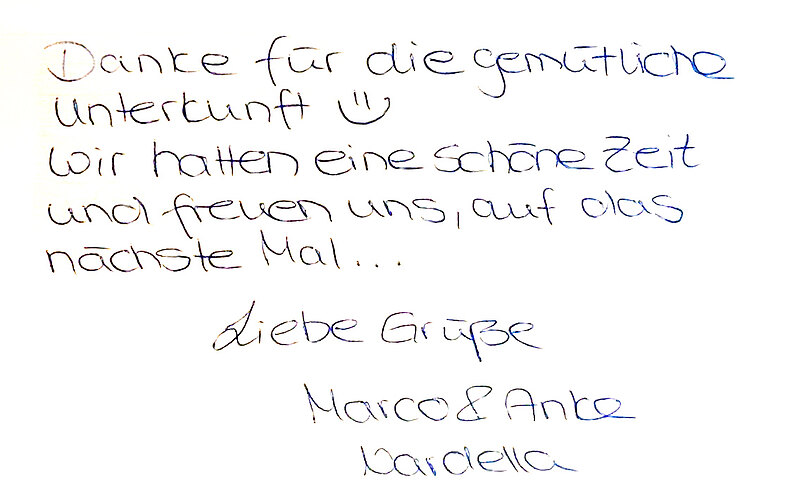 Danke für die gemütliche
Unterkunft
Wir hatten eine schöne Zeit
und freuen uns, auf das
nächste Mal...
Liebe Grüße
Marco & Anke
Nardella